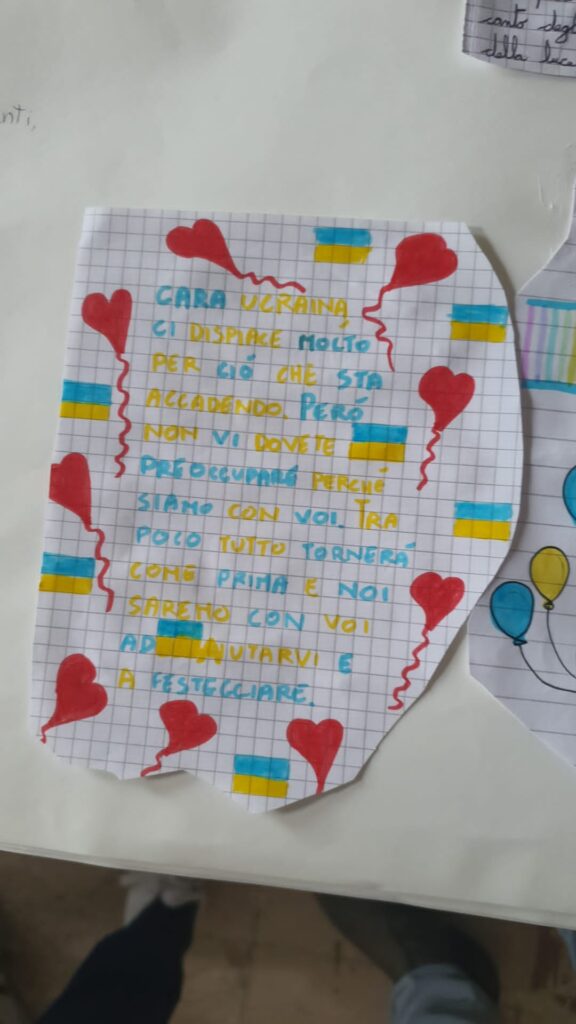 nti,
canto degl
della luce
CARA UCRAINA
CI DISPIACE MOLTO
PER CIÓ CHE STA
ACCADENDO. PERÓ
NON VI DOVETE
PREOCCUPARE PERCHÉ
SIAMO CON VOI. TRA
POCO TUTTO TORNERÁ
COME PRIMA E NOI
SAREMO CON VOI
AD AIUTARVI E
A FESTEGGIARE.